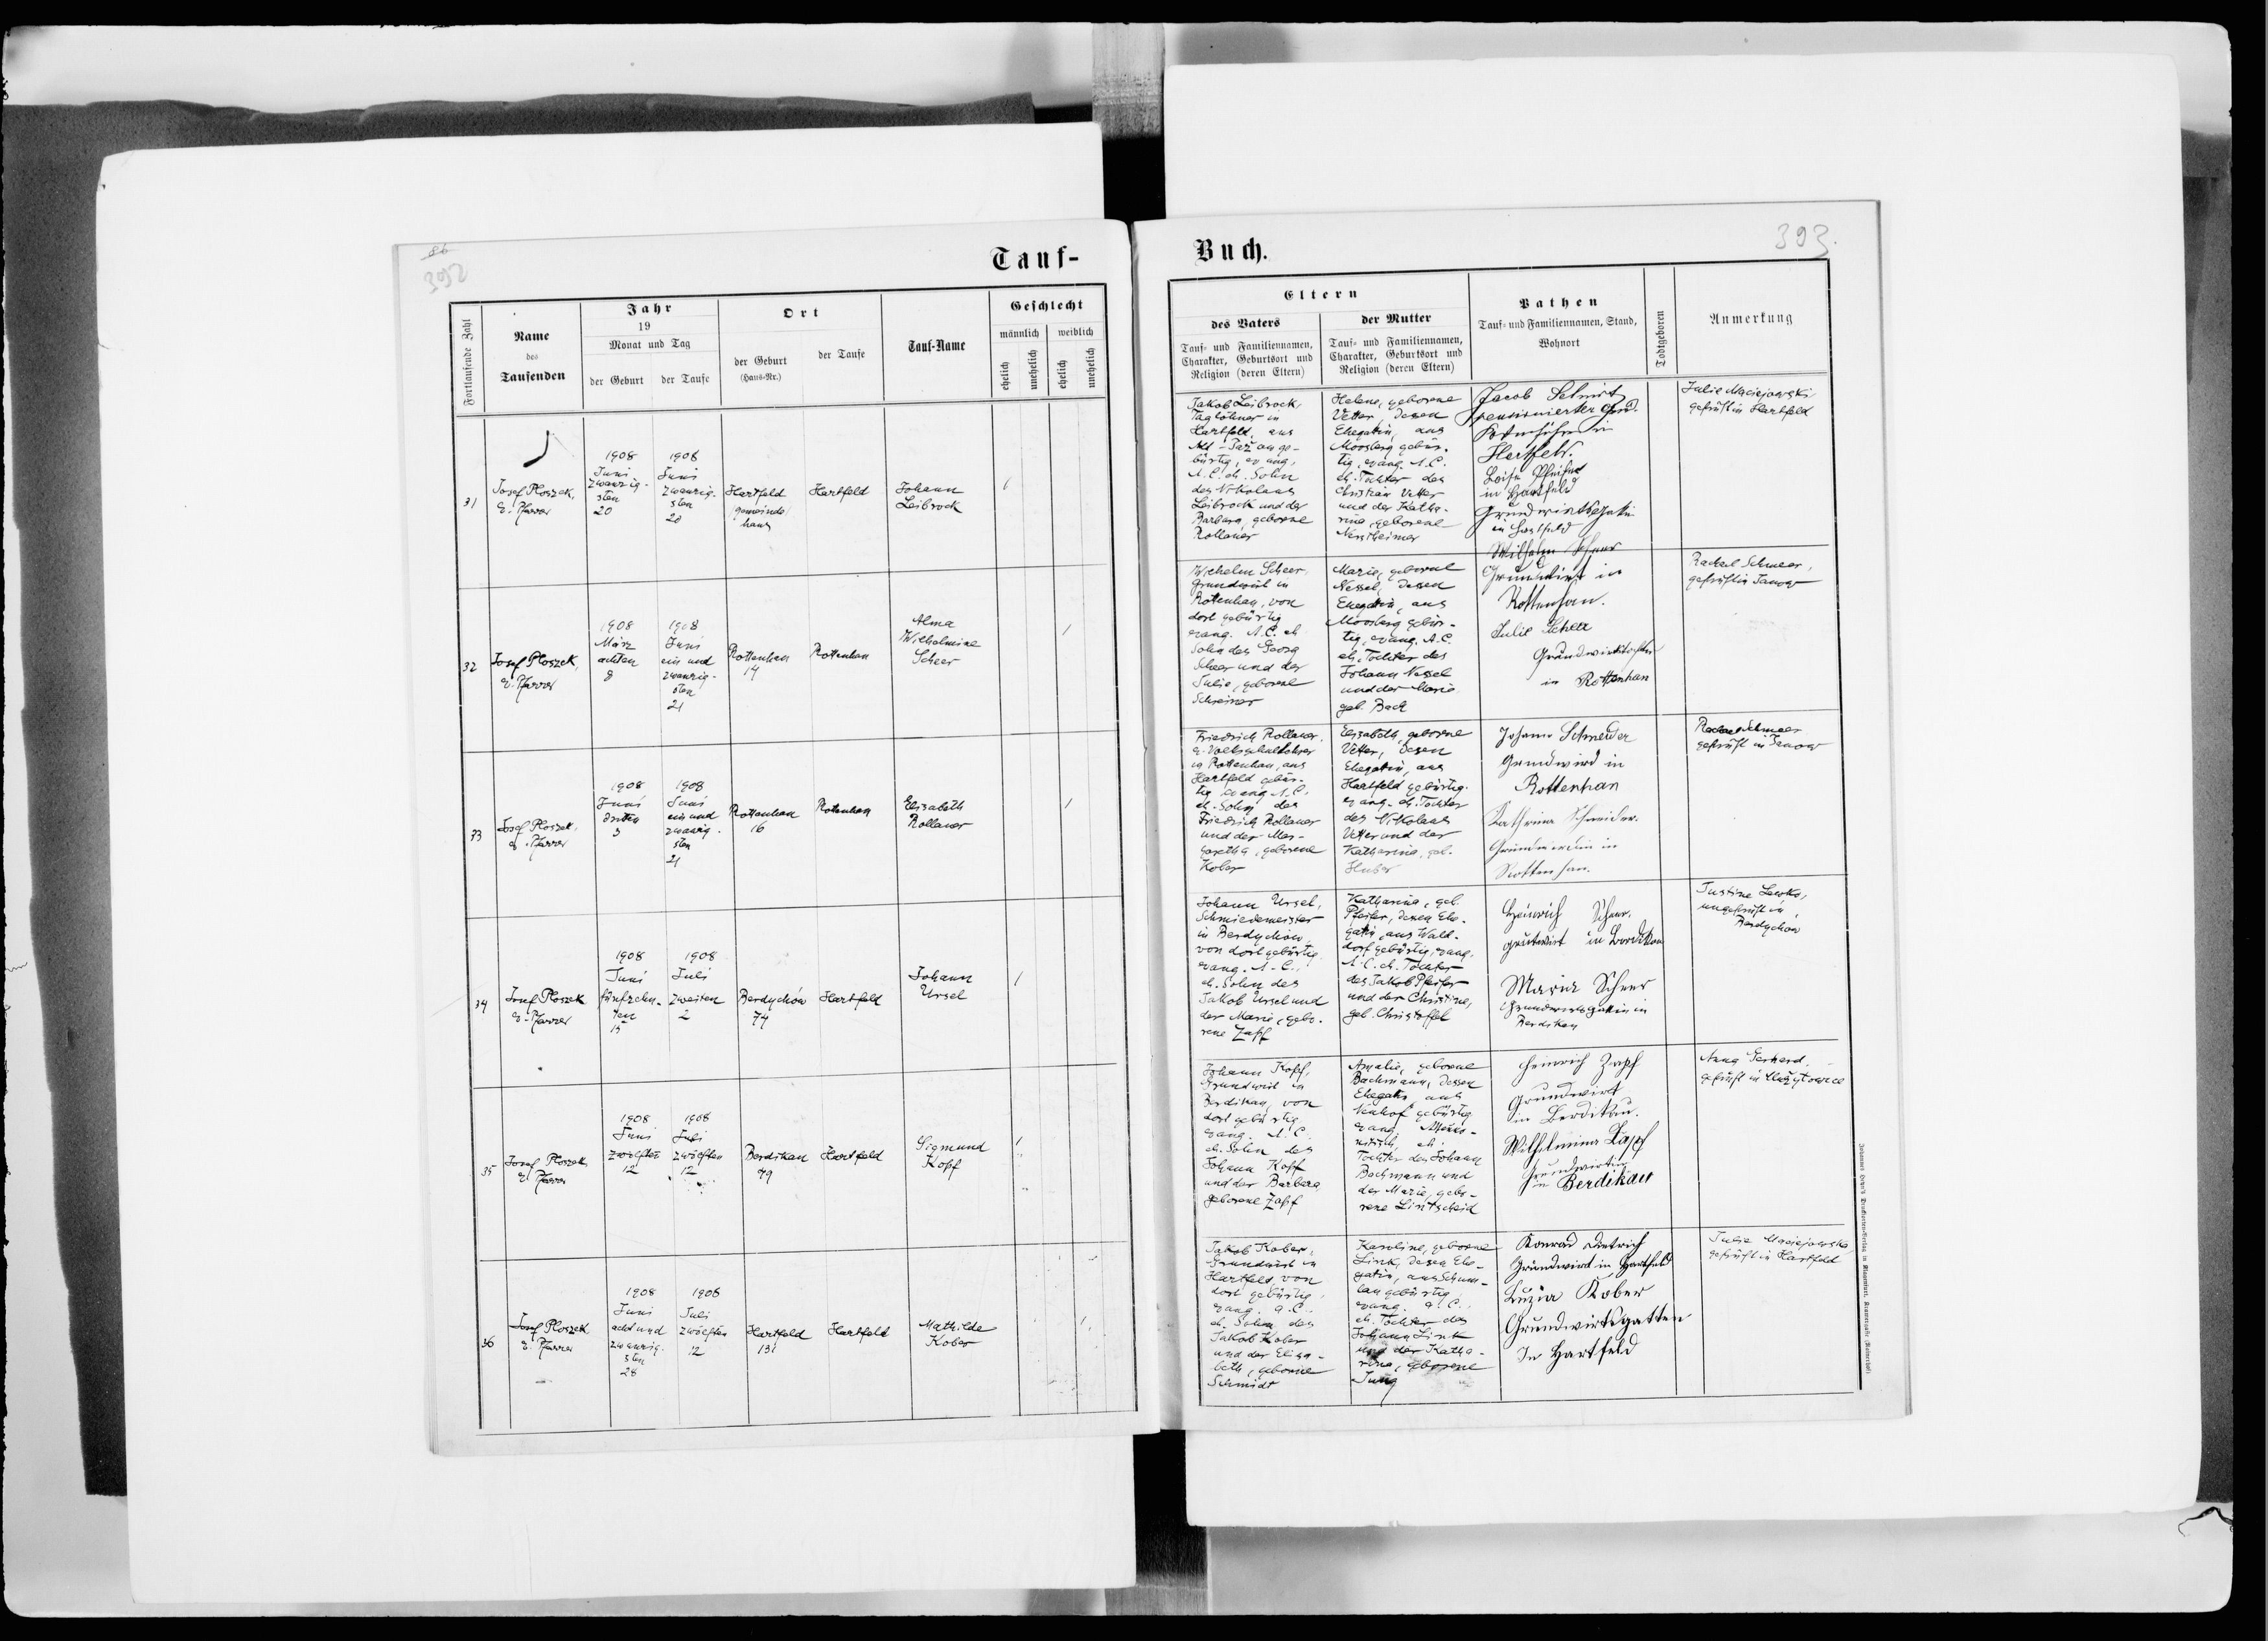 86
392
Tauf-
Fortlaufende Zahl
Name
des
Taufenden
Jahr
19
Monat und Tag
der Geburt
der Taufe
Ort
der Geburt
(Haus-Nr.)
der Taufe
Tauf-Name
Geschlecht
männlich
weiblich
ehelich
unehelich
ehelich
unehelich
31
Josef Ploszek,
e. Pfarrer
1908
Juni
zwanzig-
sten
20
1908
Juni
zwanzig-
sten
20
Hartfeld
gemeinde
haus
Hartfeld
Johann
Leibrock
1
32
Josef Ploszek,
e. Pfarrer
1908
März
achten
8
1908
Juni
ein und
zwanzig-
sten
21
Rottenhan
14
Rottenhan
Alma
Wilhelmine
Scheer
1
33
Josef Ploszek,
e. Pfarrer
1908
Juni
dritten
3
1908
Juni
ein und
zwanzig-
sten
21
Rottenhan
16
Rottenhan
Elisabeth
Rollauer
1
34
Josef Ploszek
e. Pfarrer
1908
Juni
fünfzehn-
ten
15
1908
Juli
zweiten
2
Berdychów
74
Hartfeld
Johann
Ursel
1
35
Josef Ploszek
e. Pfarrer
1908
Juni
zwölften
12
1908
Juli
zwölften
12
Berdikau
79
Hartfeld
Sigmund
Kopf
1
36
Josef Ploszek
e. Pfarrer
1908
Juni
acht und
zwanzig-
sten
28
1908
Juli
zwölften
12
Hartfeld
131
Hartfeld
Mathilde
Kober
1
Buch.
393.
Eltern
des Vaters
Tauf- und Familiennamen,
Charakter, Geburtsort und
Religion (deren Eltern)
der Mutter
Tauf- und Familiennamen,
Charakter, Geburtsort und
Religion (deren Eltern)
Pathen
Tauf- und Familiennamen, Stand,
Wohnort
Todtgeboren
Anmerkung
Jakob Leibrock,
Taglöhner in
Hartfeld, aus
Alt-Jażow ge-
bürtig, evang.
A.C. eh. Sohn
des Nikolaus
Leibrock und der
Barbara, geborene
Rollauer
Helene, geborene
Vetter, dessen
Ehegattin, aus
Moosberg gebür-
tig, evang. A.C.
eh. Tochter des
Christian Vetter
und der Katha-
rina, geborene
Jacob Schmidt
pensionierter
in
Hartfeld.
in Hartfeld
Grundwirtsgattin
in Hartfeld
Julie Maciejowski
geprüft in Hartfeld
Wilhelm Scheer,
Grundwirt in
Rottenhan, von
dort gebürtig
evang. A.C. eh.
Sohn des Georg
Scheer und der
Julie, geborene
Schreiner
Marie, geborene
Nessel, dessen
Ehegattin, aus
Moosberg gebür-
tig, evang. A.C.
eh. Tochter des
Johann Nessel
und der Marie
geb. Bach
Wilhelm Scheer
Grundwirt in
Rottenhan.
Julie Scheer
Grundwirtstochter
in Rottenhan
Rachel Schmeer,
geprüft in Janow
Friedrich Rollauer,
e. Volksschullehrer
in Rottenhan, aus
Hartfeld gebür-
tig evang. A.C.
eh. Sohn des
Friedrich Rollauer
und der Mar-
garetha, geborene
Kober
Elisabeth, geborene
Vetter, dessen
Ehegattin, aus
Hartfeld gebürtig.
evang. eh. Tochter
des Nikolaus
Vetter und der
Katharina, geb.
Huber
Johann Schneider
Grundwird in
Rottenhan
Kathrina Schneider.
Grundwirtin in
Rottenhan.
Rachel Schmeer
geprüft in Janow
Johann Ursel,
Schmiedemeister
in Berdychów
von dort gebürtig.
evang. A.C.,
eh. Sohn des
Jakob Ursel und
der Marie, gebo-
rene Zapf
Katharina, geb.
Pfeifer, dessen Ehe-
gattin, aus Wald-
dorf gebürtig, evang.
A.C. eh. Tochter
des Jakob Pfeifer
und der Christine,
geb. Christoffel
Heinrich Scheer,
Maria Scheer
Grundwirtsgattin in
Berdikau
Justine Lewko,
ungeprüft in
Berdychów
Johann Kopf,
Grundwirt in
Berdikau, von
dort gebürtig
evang. A.C.
eh. Sohn des
Johann Kopf
und der Barbara
geborene Zapf
Amalie, geborene
Bachmann, dessen
Ehegattin, aus
Neuhof gebürtig
evang. Menno-
nitisch, eh.
Tochter des Johann
Bachmann und
der Marie, gebo-
rene Lintscheid
Heinrich Zapf
Grundwirt
in Berdikau.
Wilhelmina Zapf
Grundwirtin
in Berdikau
Anna Gerhard
geprüft in
Jakob Kober,
Grundwirt in
Hartfeld, von
dort gebürtig,
evang. A.C.
eh. Sohn des
Jakob Kober
und der Elisa-
beth, geborene
Schmidt
Karoline, geborene
Link, dessen Ehe-
gattin, aus Schum-
lau gebürtig
evang. A.C.,
eh. Tochter des
Johann Link
und der Katha-
rina, geborene
Jung
Konrad Dietrich
Grundwirt in Hartfeld
Luzia Kober
Grundwirtsgatten
In Hartfeld
Julie Maciejowska
geprüft in Hartfeld